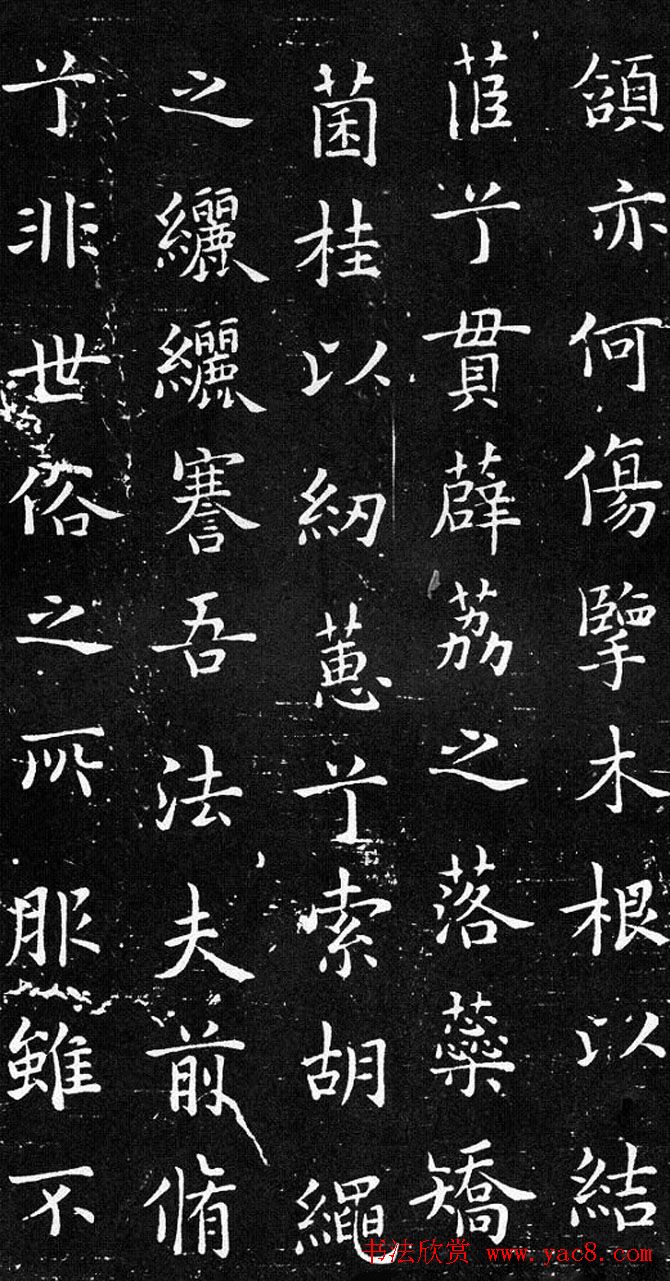 頷亦何傷擥木根以結
茝兮貫薜荔之落蘂矯
菌桂以紉蕙兮索胡繩
之纚纚謇吾法夫前脩
兮非世俗之所服雖不
书法欣赏 www.yac8.com